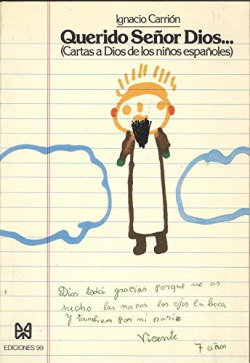 Ignacio Carrión
Querido Señor Dios...
(Cartas a Dios de los niños españoles)
Dios todo gracias porque me as
hecho las manos los ojos la boca
y tambien por mi nariz
Vicente
7 años
EDICIONES 99